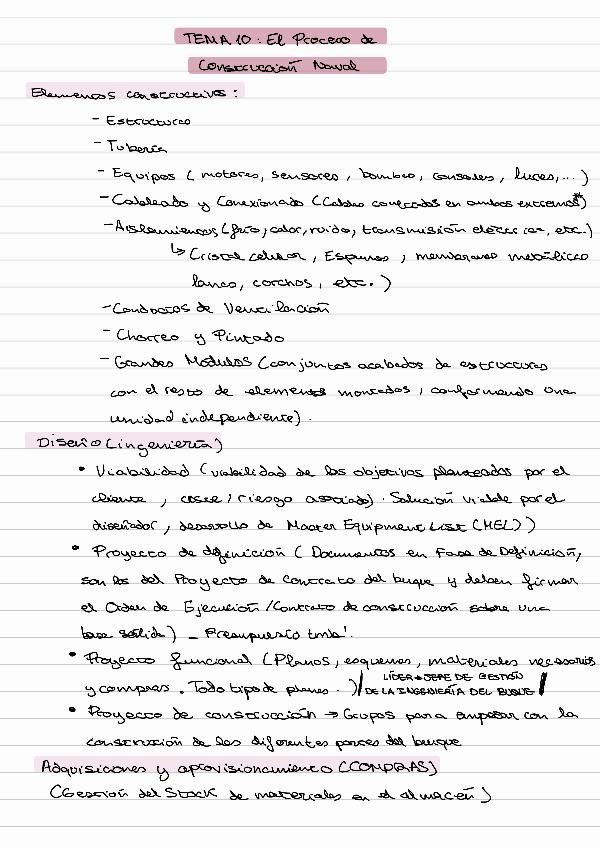 TEMA 10: El Proceso de
Construcción Naval
Elementos constructivos:
- Estructuras
- Tubería
- Equipos (motores, sensores, bombas, consolas, luces,...)
- Cableado y Conexionado (Cables conectados en ambos extremos*)
- Aislamientos (frío, calor, ruido, transmisión eléctrica, etc.)
↳ Cristal celular, Espumas, membranas metálicas
lanas, corchos, etc.)
- Conductos de Ventilación
- Chorreo y Pintado
- Grandes Módulos (conjuntos acabados de estructuras
con el resto de elementos montados, conformando una
unidad independiente).
Diseño (ingeniería)
• Viabilidad (viabilidad de los objetivos planteados por el
cliente, coste/riesgo asociado). Solución viable por el
diseñador, desarrollo de Master Equipment List (MEL))
• Proyecto de definición (Documentos en Fase de Definición,
son los del Proyecto de Contrato del buque y deben firmar
el Orden de Ejecución/Contrato de construcción sobre una
base sólida) - Presupuesto tmb'.
• Proyecto funcional (Planos, esquemas, materiales necesarios
y compras. Todo tipo de planos. )/ LÍDER = JEFE DE GESTIÓN
DE LA INGENIERÍA DEL BUQUE /
• Proyecto de construcción → Grupos para empezar con la
construcción de las diferentes partes del buque
Adquisiciones y aprovisionamiento (COMPRAS)
(Gestión del Stock de materiales en el almacén)